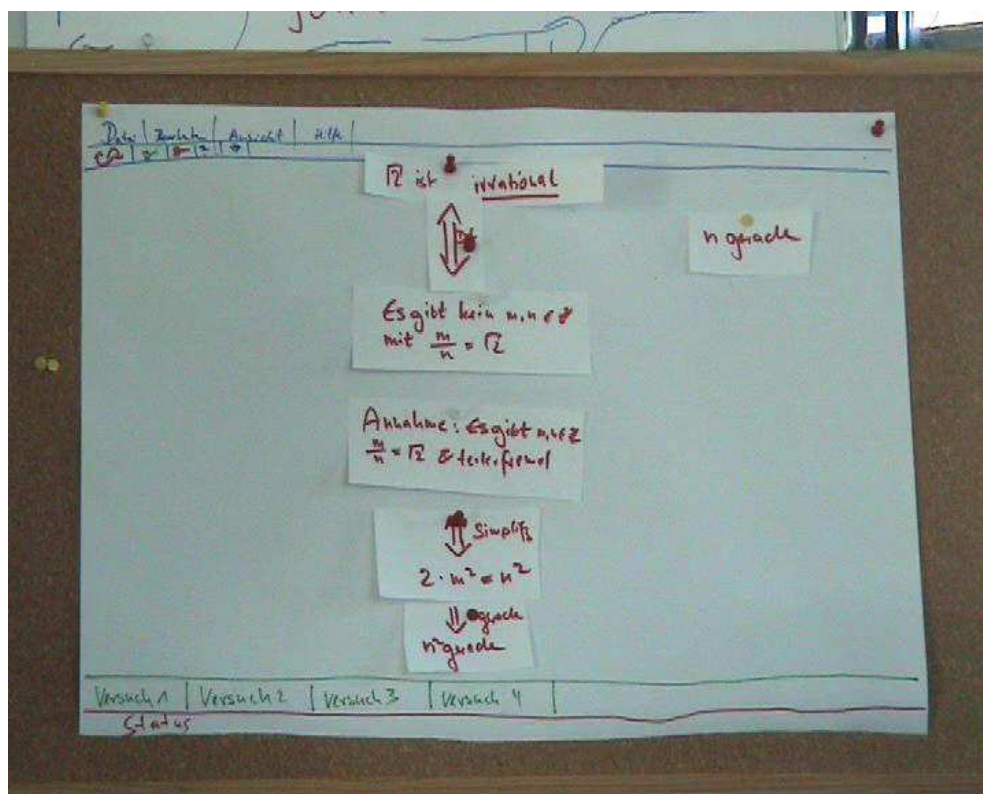 Datei | Bearbeiten | Ansicht | Hilfe
√2 ist irrational
n gerade
Es gibt kein m,n ∈ Z
mit m/n = √2
Annahme: Es gibt m,n ∈ Z
m/n = √2 & teilerfremd
Simplify
2 · m² = n²
gerade
n² gerade
Versuch 1 | Versuch 2 | Versuch 3 | Versuch 4
Status